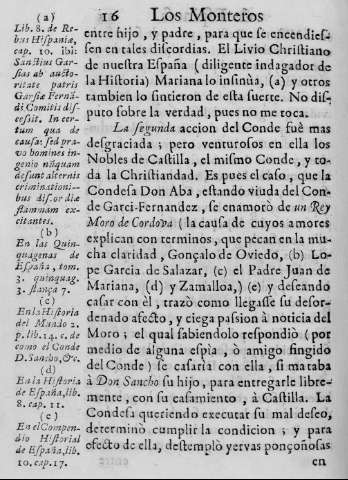 16 Los Monteros
entre hijo, y padre, para que se encendies-
sen en tales discordias. El Livio Christiano
de nuestra España (diligente indagador de
la Historia) Mariana lo insinùa, (a) y otros
tambien lo sintieron de esta suerte. No dis-
puto sobre la verdad, pues no me toca.
La segunda accion del Conde fuè mas
desgraciada; pero venturosos en ella los
Nobles de Castilla, el mismo Conde, y to-
da la Christiandad. Es pues el caso, que la
Condesa Don Aba, estando viuda del Con-
de Garci-Fernandez, se enamorò de un Rey
Moro de Cordova (la causa de cuyos amores
explican con terminos, que pecan en la mu-
cha claridad, Gonçalo de Oviedo, (b) Lo-
pe Garcia de Salazar, (c) el Padre Juan de
Mariana, (d) y Zamalloa,) (e) y deseando
casar con èl, trazò como llegasse su desor-
denado afecto, y ciega passion à noticia del
Moro; el qual sabiendolo respondiò (por
medio de alguna espia, ò amigo fingido
del Conde) se casaria con ella, si mataba
à Don Sancho su hijo, para entregarle libre-
mente, con su casamiento, à Castilla. La
Condesa queriendo executar su mal deseo,
determinò cumplir la condicion; y para
efecto de ella, destemplò yervas ponçoñosas
en
(a)
Lib. 8. de Re-
bus Hispaniæ,
cap. 10. ibi:
Sanctius Gar-
sias ab aucto-
ritate patris
Garsiæ Fernã-
di Comitis dis-
cessit. In cer-
tum qua de
causa: sed pra-
vo homines in-
genio nusquam
desunt alternis
criminationi-
bus discordiæ
flammam ex-
citantes.
(b)
En las Quin-
quagenas de
España, tom.
3. quinquag.
3. stança 7.
(c)
En la Historia
del Mundo 2.
p. lib. 14. c. de
como el Conde
D. Sancho, &c.
(d)
En la Historia
de España, lib.
8. cap. 11.
(e)
En el Compen-
dio Historial
de España, lib.
10. cap. 17.